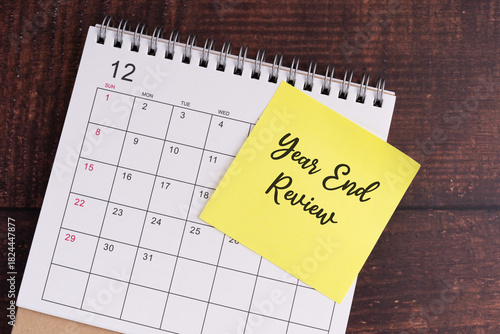 12
SUN MON TUE WED
1 2 3 4
8 9 10 11
15 16 17 18
22 23 24 25
29 30 31
Year End
Review
1824447877